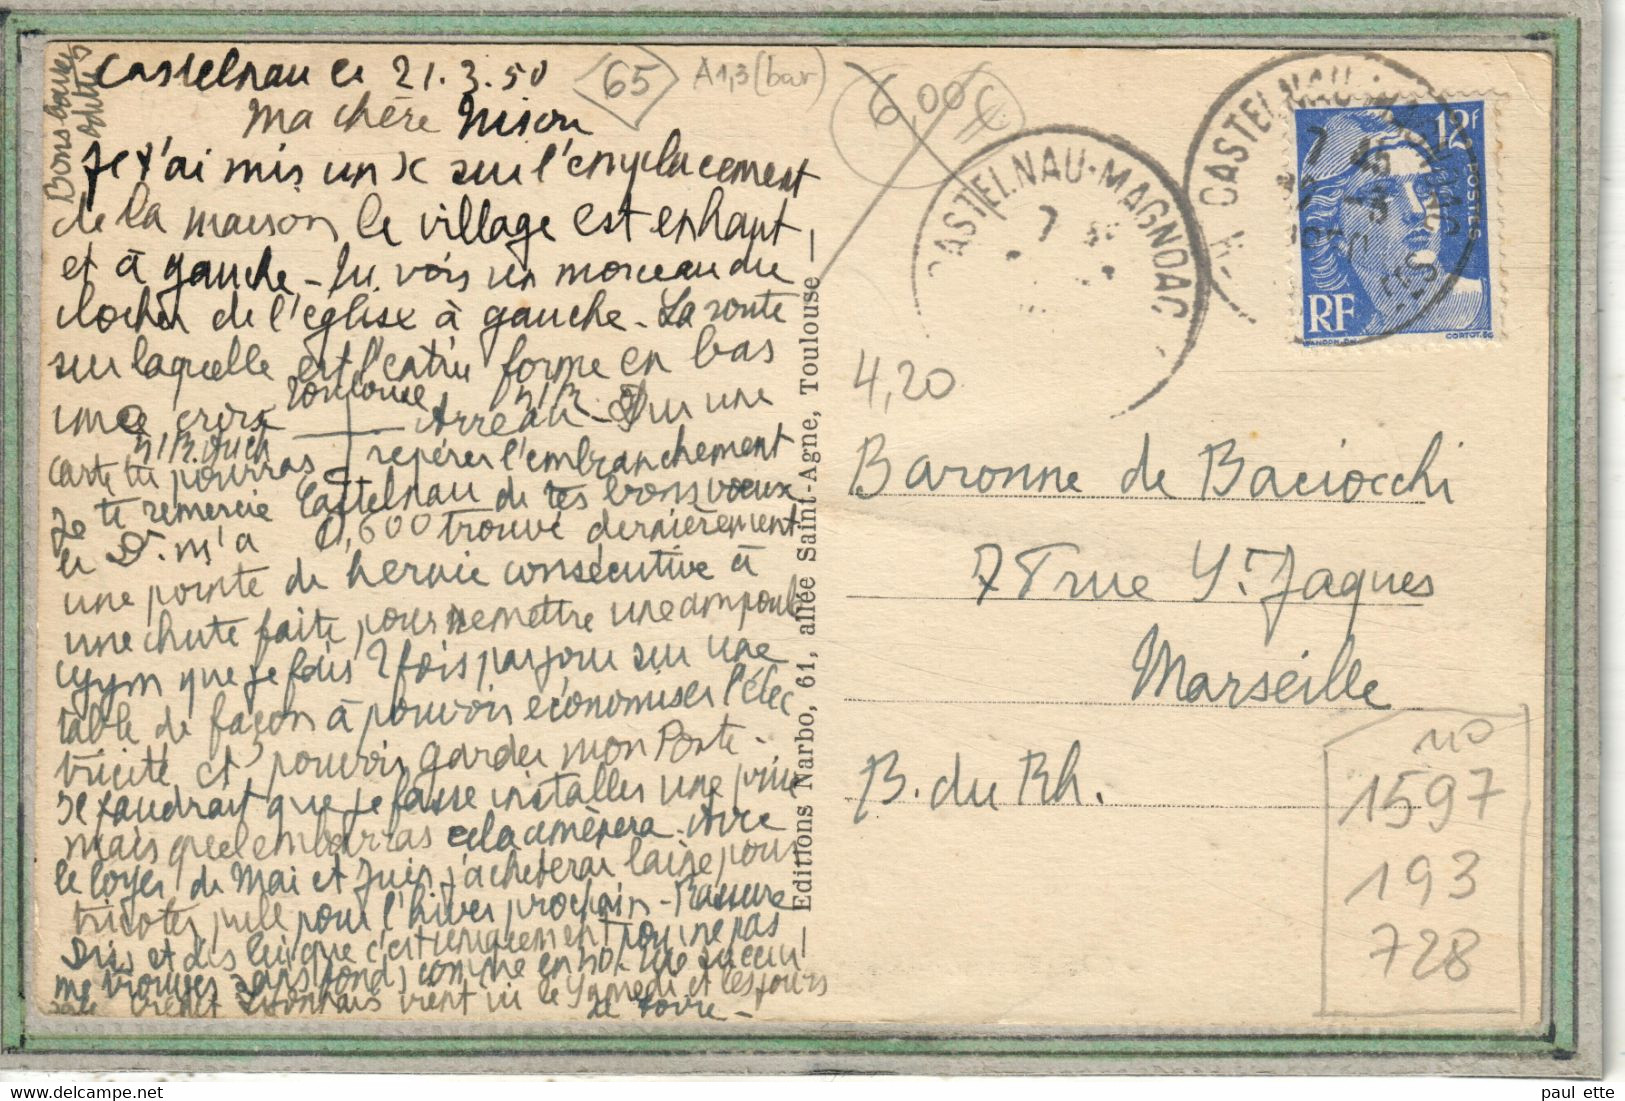 Bons baisers
Odette
Castelnau le 21.3.50
65
A1,3 (bar)
6,00 €
Ma chère Ninon
Je t'ai mis un X sur l'emplacement
de la maison le village est en haut
et à gauche - tu vois un morceau du
clocher de l'église à gauche - La route
sur laquelle est l'entrée forme en bas
une croix Toulouse
N/R. Auch
Arreau - Sur une
carte tu pourras repérer l'embranchement
Castelnau
Je te remercie de tes bons voeux
le Dr. m'a trouvé dernièrement
une pointe de hernie consécutive à
une chute faite, pour remettre une ampoule
que je fais 2 fois par jour sur une
table de façon à pouvoir économiser l'élec
tricité et pouvoir garder mon Poste -
Il faudrait que je fasse installer une prise
mais quel embarras cela amènera - Avec
le loyer de Mai et Juin j'achèterai laine pour
tricoter pull pour l'hiver prochain - Rassure
et dis lui que c'est uniquement pour ne pas
me trouver sans fonds comme en
Crédit Lyonnais vient ici le Samedi et les jours
de foire -
Editions Narbo, 61, allée Saint-Agne, Toulouse
CASTELNAU-MAGNOAC
7
CASTELNAU-MAGNOAC
7
12F
POSTES
RF
GANDON.DEL
CORTOT.SC
4,20
Baronne de Baciocchi
7 rue St. Jaques
Marseille
B. du Rh.
no
1597
193
728
www.delcampe.net
paul ette